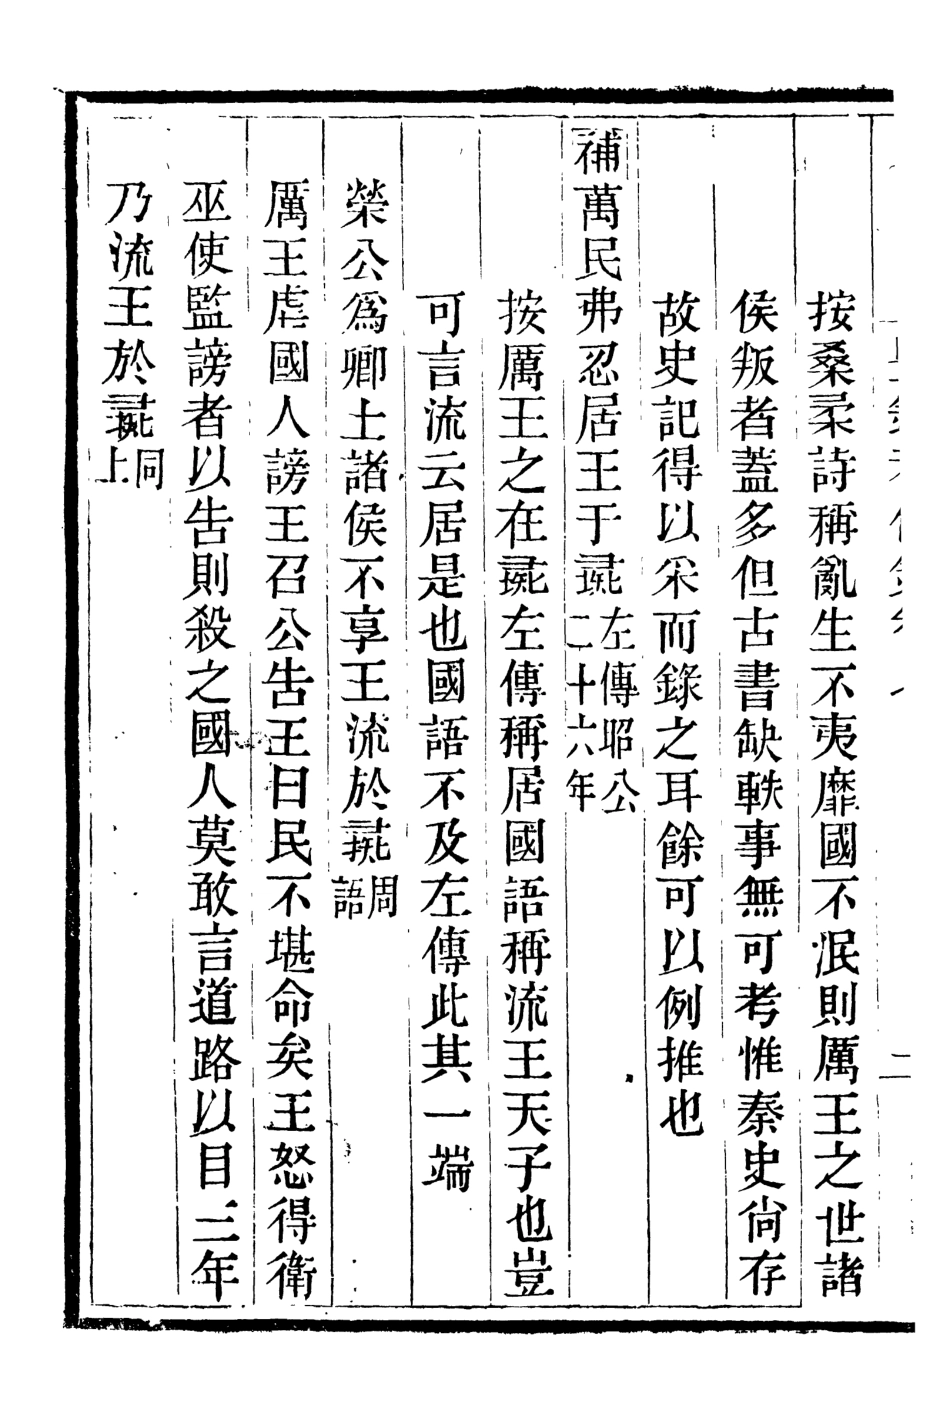 按桑柔詩稱亂生不夷靡國不泯則厲王之世諸
侯叛者蓋多但古書缺軼事無可考惟秦史尙存
故史記得以采而錄之耳餘可以例推也
補萬民弗忍居王于彘左傳昭公二十六年
按厲王之在彘左傳稱居國語稱流王天子也豈
可言流云居是也國語不及左傳此其一端
榮公爲卿士諸侯不享王流於彘周語
厲王虐國人謗王召公告王曰民不堪命矣王怒得衛
巫使監謗者以告則殺之國人莫敢言道路以目三年
乃流王於彘同上